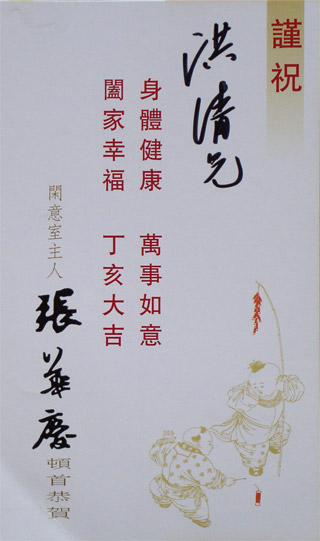 謹祝
洪清兄
身體健康 萬事如意
闔家幸福 丁亥大吉
閑意室主人
張華慶
頓首恭賀